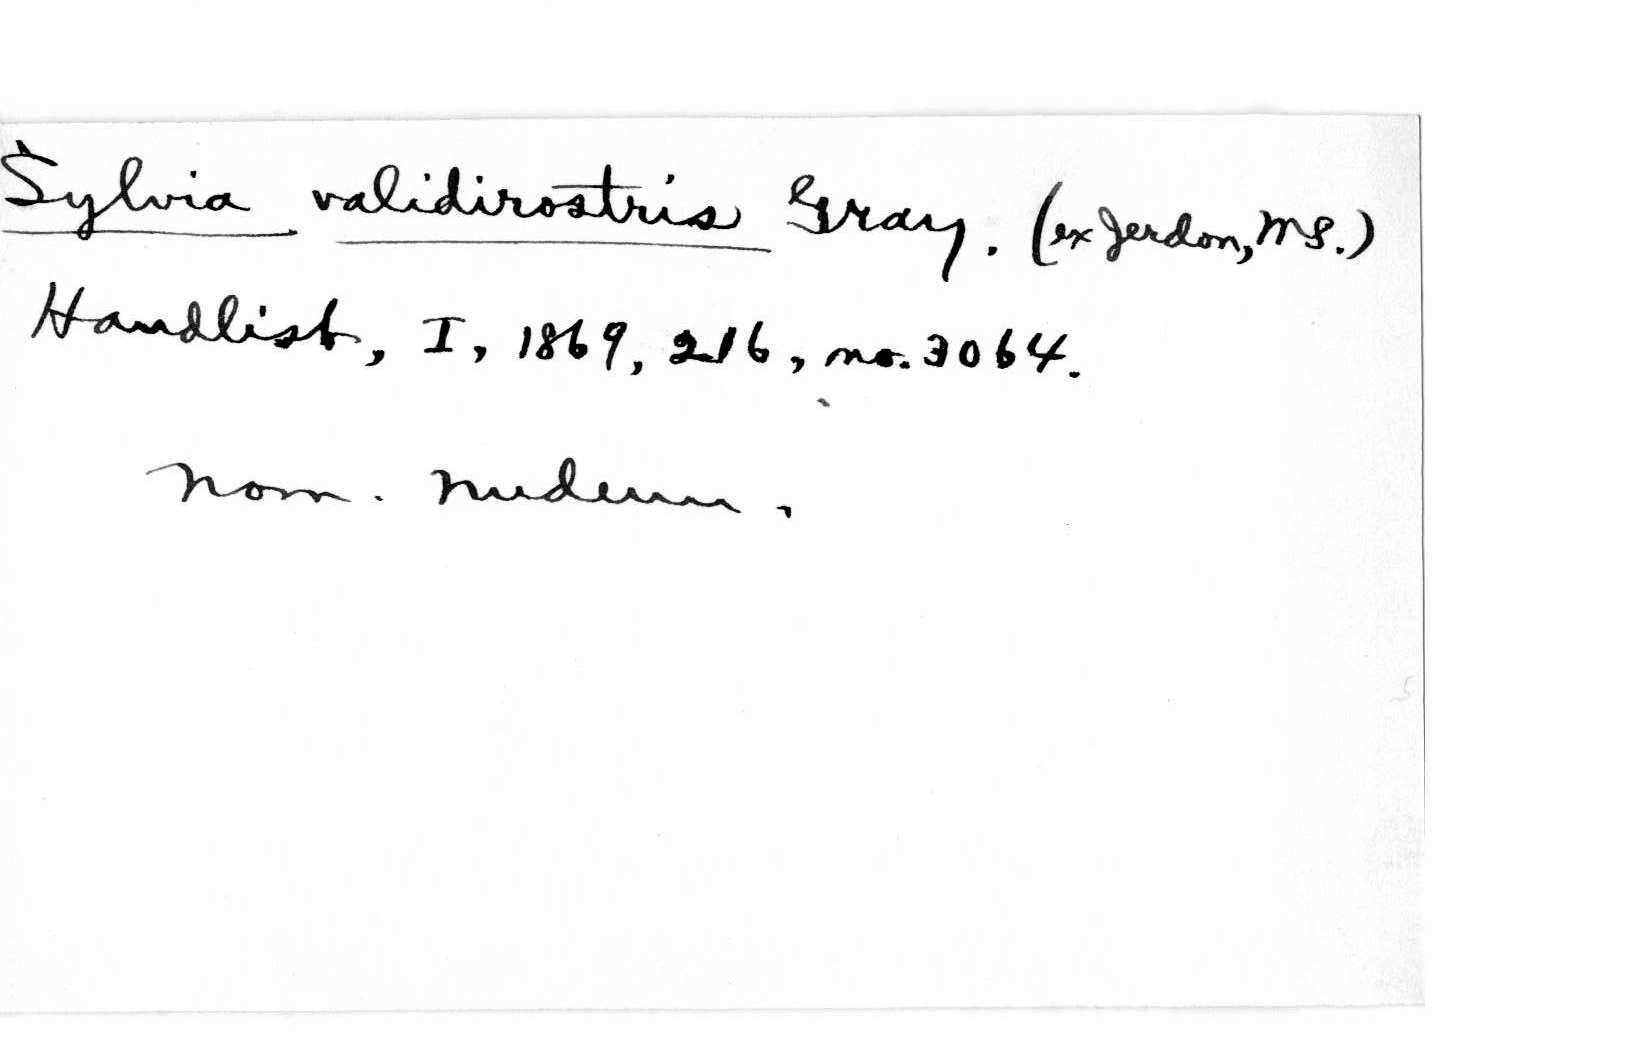 Sylvia validirostris Gray. (ex Jerdon, MS.)
Handlist, I, 1869, 216, no. 3064.
nom. nudum.